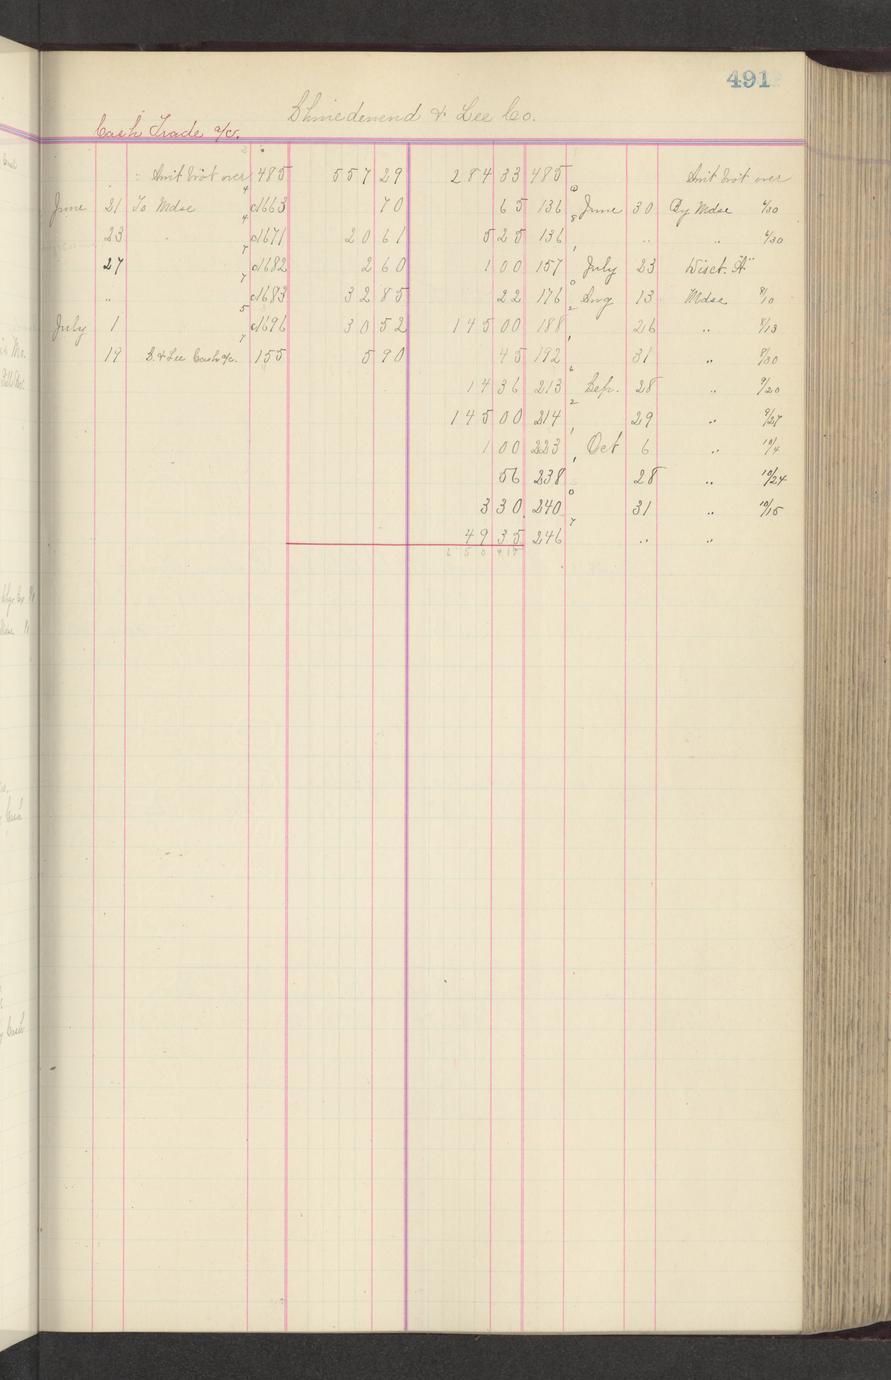 491
Shniedewend & Lee Co.
Cash Trade a/c.
Amt brot over 485 557 29 284 33 485 Amt brot over
June 21 To Mdse 1663 70 65 136 June 30 By Mdse 6/30
23 " 1671 20 61 5 25 136 " " 6/30
27 1682 2 60 1 00 157 July 23 Disct. "A"
" 1683 32 85 22 176 Aug 13 Mdse 8/10
July 1 1696 30 52 145 00 188 26 " 8/13
19 S. & Lee Cash a/c. 155 5 90 45 192 31 " 8/30
14 36 213 Sep. 28 " 9/20
145 00 214 29 " 9/27
1 00 223 Oct 6 " 10/4
56 238 28 " 10/24
3 30 240 31 " 10/15
49 35 246 " "